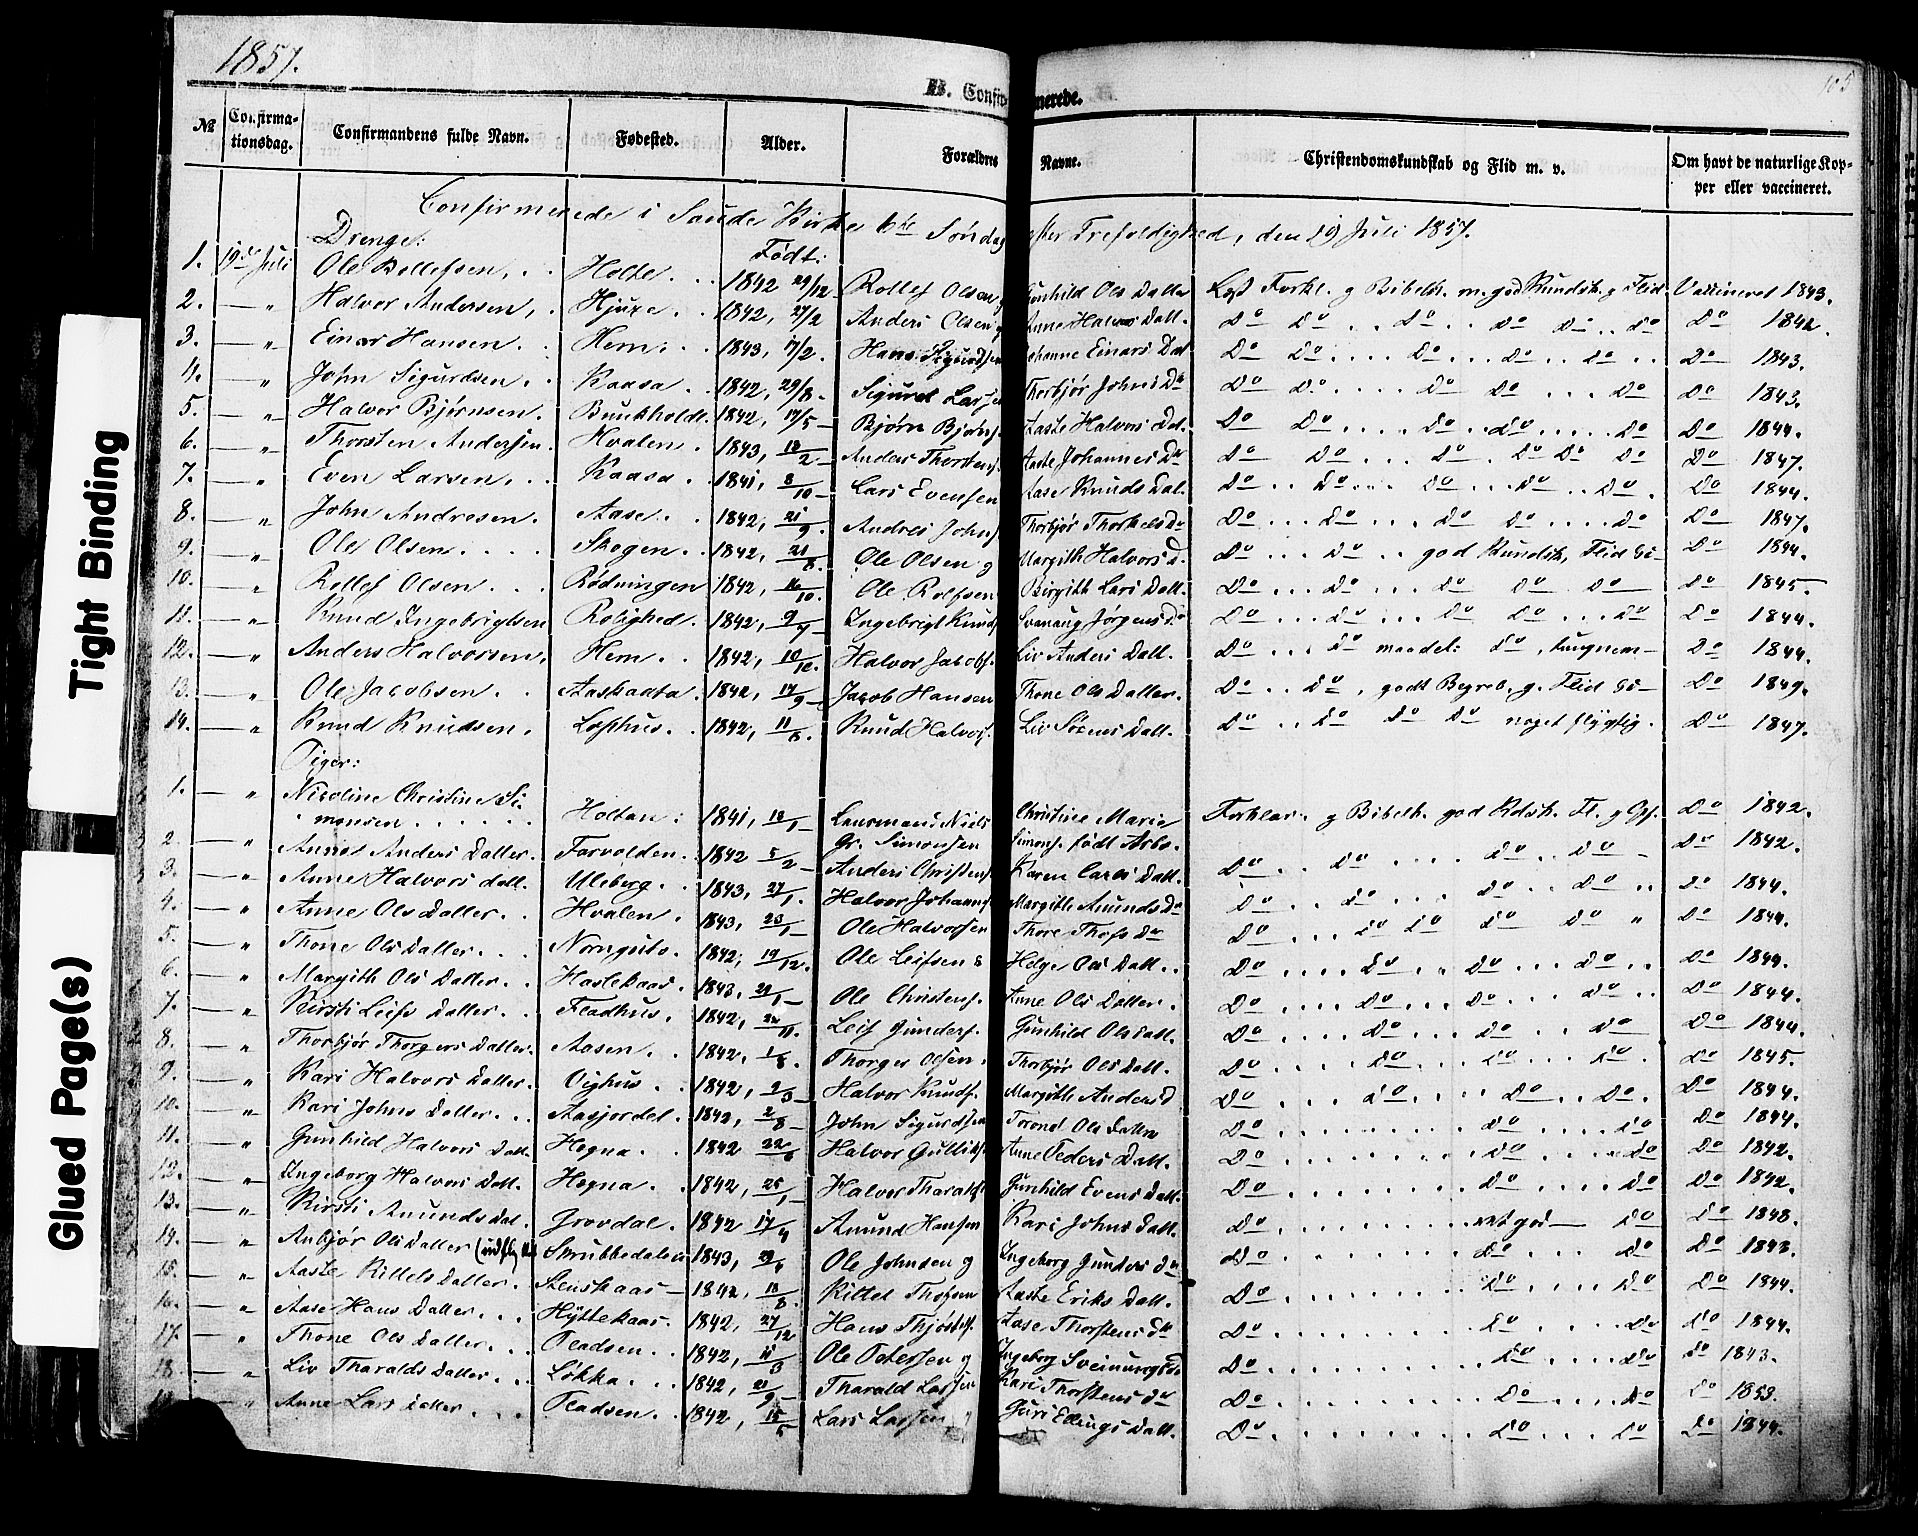 1857.
105
B. Confir nerede.
№ Confirma-tionsdag. Confirmandens fulde Navn. Fødested. Alder. Forældres Navne. Christendomskundskab og Flid m. v. Om havt de naturlige Kop-per eller vaccineret.
Confirmerede i Saude Kirke 6te Søndag efter Trefoldighed, den 19 Juli 1857.
Drenge: Født:
1. 19de Juli Ole Rollefsen, Holte 1842 29/12 Rollef Olsen Gunhild Ols Datter Forkl. g Bibelh. m. god Kundsk. g Flid Vaccineret 1843.
2. — " Halvor Andersen, Hjuxe 1842, 27/2 Anders Olsen Anne Halvors Datt. Do Do Do Do Do Do Do 1842.
3. — " Einar Hansen Hem 1843, 17/2 Hans Sigurdsen Johanne Einars Dat Do Do Do Do Do Do 1843.
4. — " John Sigurdsen Kaasa 1842, 29/8 Sigurd Larsen Thorbjør Johns Dr Do Do Do Do Do Do 1843.
5. — " Halvor Bjørnsen Bunkholdt 1842, 17/5 Bjørn Bjørns. Aaste Halvors Dat. Do Do Do Do Do Do 1844.
6. — " Thorsten Andersen Hvalen 1843, 13/2 Anders Thorstens. Aaste Johannes Dr Do Do Do Do Do Do Do 1847.
7. — " Even Larsen Kaasa 1841, 8/10 Lars Evensen Aase Knuds Dat. Do Do Do Do Do Do 1844.
8. — " John Andresen Aase 1842, 21/9 Andres Johns. Thorbjør Thorkels Dr Do Do Do Do Do Do 1847.
9. — " Ole Olsen Skogen 1842, 21/8 Ole Olsen g Margith Halvors d. Do Do god Kundsk, Flid Do 1844.
10. — " Rollef Olsen Rødningen 1842, 16/10 Ole Rolfsen Birgith Lars Datt. Do Do Do Do Do Do 1845
11. — " Knud Ingebrigtsen Rolighed 1842, 9/9 Ingebrigt Knuds Svanaug Jørgens Dr Do Do Do Do Do Do 1844.
12. — " Anders Halvorsen Hem 1842, 10/10 Halvor Jacobs. Liv Anders Datt. Do Do maadel: Do, tungnem Do 1844.
13. — " Ole Jacobsen Aaskaata 1842, 17/9 Jacob Hansen Thone Ols Datter. Do Do, godt Begreb g. Flid Do 1849.
14. — " Knud Knudsen Lofthus 1842, 11/8 Knud Halvors. Liv Sørens Datt. Do Do Do Do noget flygtig Do 1847.
Piger:
1. — " Nicoline Christine Si-
monsen Holtan 1841, 18/1 Lensmand Niels Christine Marie Forklar. g Bibelh. god Kdsk. Fl. g Do 1842.
Gr. Simonsen Simons. født Arbo.
2. — " Anne Anders Datter. Farvolden 1842 5/2 Anders Christens. Karen Lars Datt. Do Do Do Do Do 1842.
3. — " Anne Halvors datt. Uleberg 1843, 27/1 Halvor Johanns Margith Amunds Dr Do Do Do Do Do 1844.
4. — " Anne Ols Datter Hvalen 1843, 23/1 Ole Halvorsen Thore Thors Dr Do Do Do Do Do " Do 1844.
5. — " Thone Ols Datter 1842, 19/12 Ole Leifsen Helge Ols Datt. Do Do Do Do Do 1844.
6. — " Margith Ols Datter Haslekaas 1843, 21/1 Ole Christens. Anne Ols Datter. Do Do Do Do Do 1844.
7. — " Kirsti Leifs Datter Fladhus 1842, 24/11 Leif Gunders. Gunhild Ols Datt. Do Do Do Do Do 1844.
8. — " Thorbjør Thorgers Datter. Aasen 1842, 1/8 Thorger Olsen Thorbjør Ols Datt. Do Do Do Do Do 1845
9. — " Kari Halvors Datter. Vighus 1842, 2/3 Halvor Knuds. Margith Anders D Do Do Do Do Do 1844.
10. — " Kari Johns Datter Aasjordet 1842, 2/8 John Sigurdsen Torond Ols Datter Do Do Do Do 1844.
11. — " Gunhild Halvors Datt. Hegna 1842 22/6 Halvor Gulliks Anne Peders Datt. Do Do Do Do 1842.
12. — " Ingeborg Halvors Datt. Hegna 1842, 25/1 Halvor Tharalds. Gunhild Evens Datt. Do Do Do Do 1842.
13. — " Kirsti Amunds dat. Grovdal 1842 17/4 Amund Hansen Kari Johns Datt. Do ret god Do Do 1848.
14. — " Anbjør Ols Datter Skrubbedalen 1843, Ole Johnsen g Ingeborg Gunders dr Do Do Do Do 1843.
15. — " Aaste Kittels Datter Stenskaas 1842, 18/8 Kittel Thofsen Aaste Eriks Datt. Do Do Do Do 1844.
16. — " Aase Hans Datter Hyttekaas 1842, 27/12 Hans Thjøstels. Aase Thorstens Dr Do Do Do Do 1844.
17. — " Thone Ols Datter Pladsen 1842, 11/3 Ole Petersen g Ingeborg Sveinungs Do Do Do Do 1843.
18. — " Liv Tharalds Datter Løkka 1842, 21/9 Tharald Larsen Kari Thorstens dr Do Do Do Do 1853.
Anne Lars datter Pladsen 1842, 15/5 Lars Larsen Guri Ellings Datt. Do Do Do Do 1844.
Tight Binding
Glued Page(s)